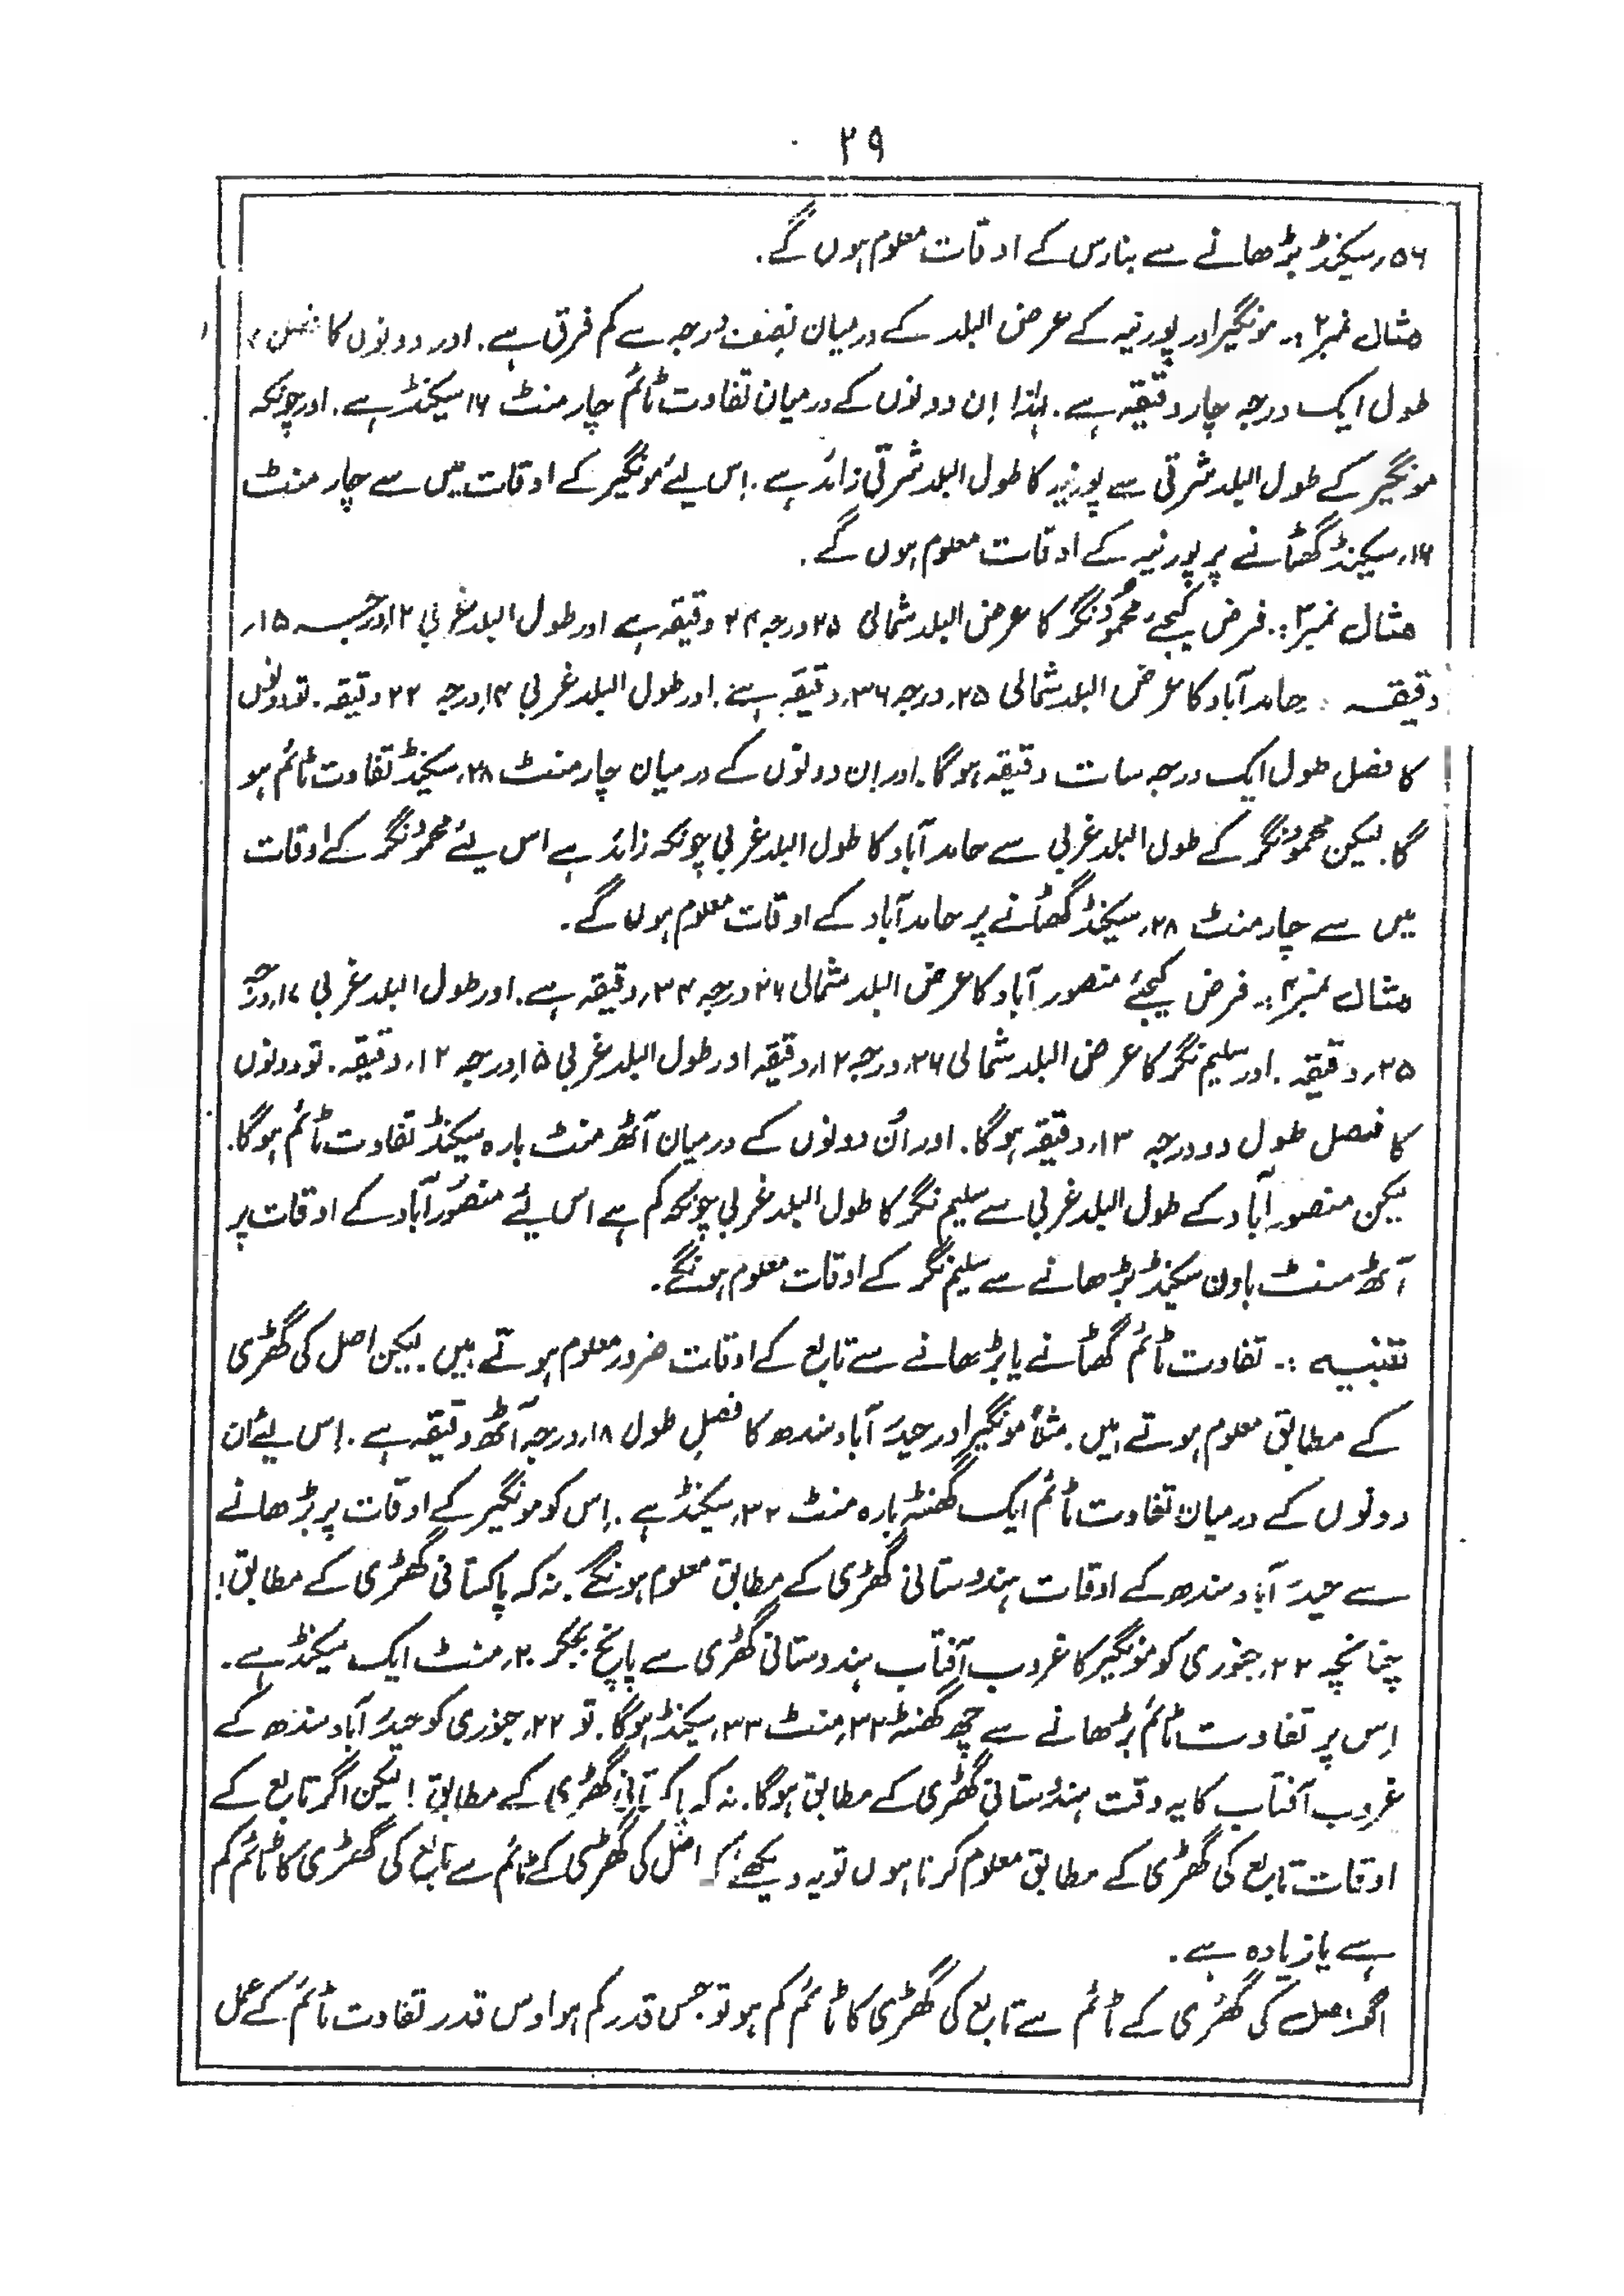 ۲۹
۵۶؍سیکنڈ بڑھانے سے بنارس کے اوقات معلوم ہوں گے۔
مثال نمبر۲:۔ مونگیر اور پورنیہ کے عرض البلد کے درمیان نصف درجہ سے کم فرق ہے۔ اور دونوں کا فصل
طول ایک درجہ چار دقیقہ ہے۔ لہٰذا اِن دونوں کے درمیان تفاوت ٹائم چار منٹ ۱۶ سیکنڈ ہے۔ اور چونکہ
مونگیر کے طول البلد شرقی سے پورنیہ کا طول البلد شرقی زائد ہے۔ اِس لئے مونگیر کے اوقات میں سے چار منٹ
۱۶؍سیکنڈ گھٹانے پر پورنیہ کے اوقات معلوم ہوں گے۔
مثال نمبر۳:۔ فرض کیجئے محمود نگر کا عرض البلد شمالی ۲۵ درجہ ۲۴ دقیقہ ہے اور طول البلد غربی ۱۲؍درجہ ۱۵؍
دقیقہ ۔ حامد آباد کا عرض البلد شمالی ۲۵؍درجہ ۳۶؍دقیقہ ہے۔ اور طول البلد غربی ۱۳؍درجہ ۲۲ دقیقہ۔ تو دونوں
کا فصل طول ایک درجہ سات دقیقہ ہوگا۔ اور اِن دونوں کے درمیان چار منٹ ۲۸؍سیکنڈ تفاوت ٹائم ہو
گا۔ لیکن محمود نگر کے طول البلد غربی سے حامد آباد کا طول البلد غربی چونکہ زائد ہے اس لئے محمود نگر کے اوقات
میں سے چار منٹ ۲۸؍سیکنڈ گھٹانے پر حامد آباد کے اوقات معلوم ہوں گے۔
مثال نمبر۴:۔ فرض کیجئے منصور آباد کا عرض البلد شمالی ۲۶ درجہ ۳۴؍دقیقہ ہے۔ اور طول البلد غربی ۱۷؍درجہ
۲۵؍دقیقہ ۔ اور سلیم نگر کا عرض البلد شمالی ۲۶؍درجہ ۱۲؍دقیقہ اور طول البلد غربی ۱۵؍درجہ ۱۲؍دقیقہ۔ تو دونوں
کا فصل طول دو درجہ ۱۳؍دقیقہ ہوگا۔ اور اُن دونوں کے درمیان آٹھ منٹ بارہ سیکنڈ تفاوت ٹائم ہوگا۔
لیکن منصور آباد کے طول البلد غربی سے سلیم نگر کا طول البلد غربی چونکہ کم ہے اس لئے منصور آباد کے اوقات پر
آٹھ منٹ باون سیکنڈ بڑھانے سے سلیم نگر کے اوقات معلوم ہونگے۔
تنبیہ :۔ تفاوت ٹائم گھٹانے یا بڑھانے سے تابع کے اوقات ضرور معلوم ہوتے ہیں۔ لیکن اصل کی گھڑی
کے مطابق معلوم ہوتے ہیں۔ مثلاً مونگیر اور حیدر آباد سندھ کا فصلِ طول ۱۸؍درجہ آٹھ دقیقہ ہے۔ اِس لئے ان
دونوں کے درمیان تفاوت ٹائم ایک گھنٹہ بارہ منٹ ۳۲؍سیکنڈ ہے۔ اِس کو مونگیر کے اوقات پر بڑھانے
سے حیدر آباد سندھ کے اوقات ہندوستانی گھڑی کے مطابق معلوم ہونگے۔ نہ کہ پاکستانی گھڑی کے مطابق!
چنانچہ ۲۲؍جنوری کو مونگیر کا غروب آفتاب ہندوستانی گھڑی سے پانچ بجکر ۲۰؍منٹ ایک سیکنڈ ہے۔
اِس پر تفاوت ٹائم بڑھانے سے چھ گھنٹہ ۳۲؍منٹ ۳۳؍سیکنڈ ہوگا۔ تو ۲۲؍جنوری کو حیدر آباد سندھ کے
غروب آفتاب کا یہ وقت ہندوستانی گھڑی کے مطابق ہوگا۔ نہ کہ پاکستانی گھڑی کے مطابق! لیکن اگر تابع کے
اوقات تابع کی گھڑی کے مطابق معلوم کرنا ہوں تو یہ دیکھئے کہ اصل کی گھڑی کے ٹائم سے تابع کی گھڑی کا ٹائم کم
ہے یا زیادہ ہے۔
اگر اصل کی گھڑی کے ٹائم سے تابع کی گھڑی کا ٹائم کم ہو تو جس قدر کم ہو اوس قدر تفاوت ٹائم کے عمل